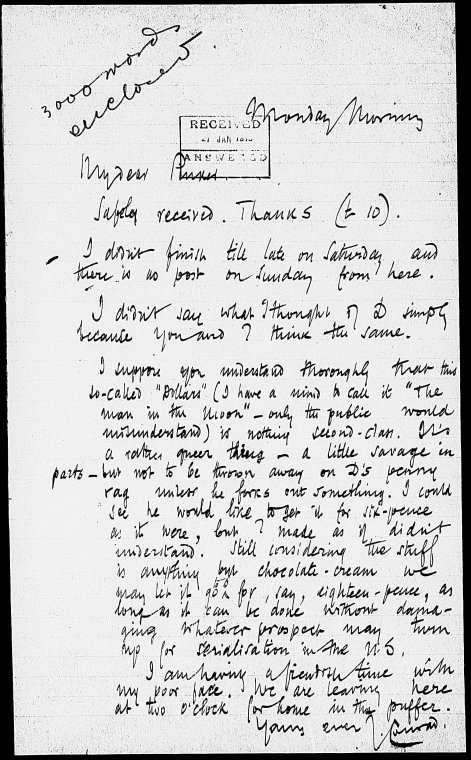 3000 words
enclosed.
Monday Morning
RECEIVED
JAN
ANSWERED
My dear Pinker
Safely received. Thanks (£ 10).
I didn't finish till late on Saturday and
there is no post on Sunday from here.
I didn't say what I thought of D simply
because you and I think the same.
I suppose you understand thoroughly that this
so-called "Dollars" (I have a mind to call it "The
man in the Moon" - only the public would
misunderstand) is nothing second-class. It's
a rather queer thing - a little savage in
parts - but not to be thrown away on D's penny
rag unless he forks out something. I could
see he would like to get it for six-pence
as it were, but I made as if didn't
understand. Still considering the stuff
is anything but chocolate-cream we
may let it go for, say, eighteen-pence, as
long as it can be done without dama-
ging whatever prospect may turn
up for serialisation in the U.S.
I am having a fiendish time with
my poor face. We are leaving here
at two o'clock for home in the puffer.
Yours ever J. Conrad.